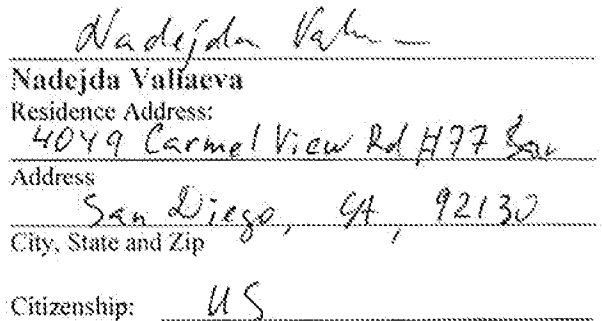 Nadejda
Nadejda Vallaeva
Residence Address:
4049 Carmel View Rd #77 San
Address
San Diego, CA, 92130
City, State and Zip
Citizenship: US